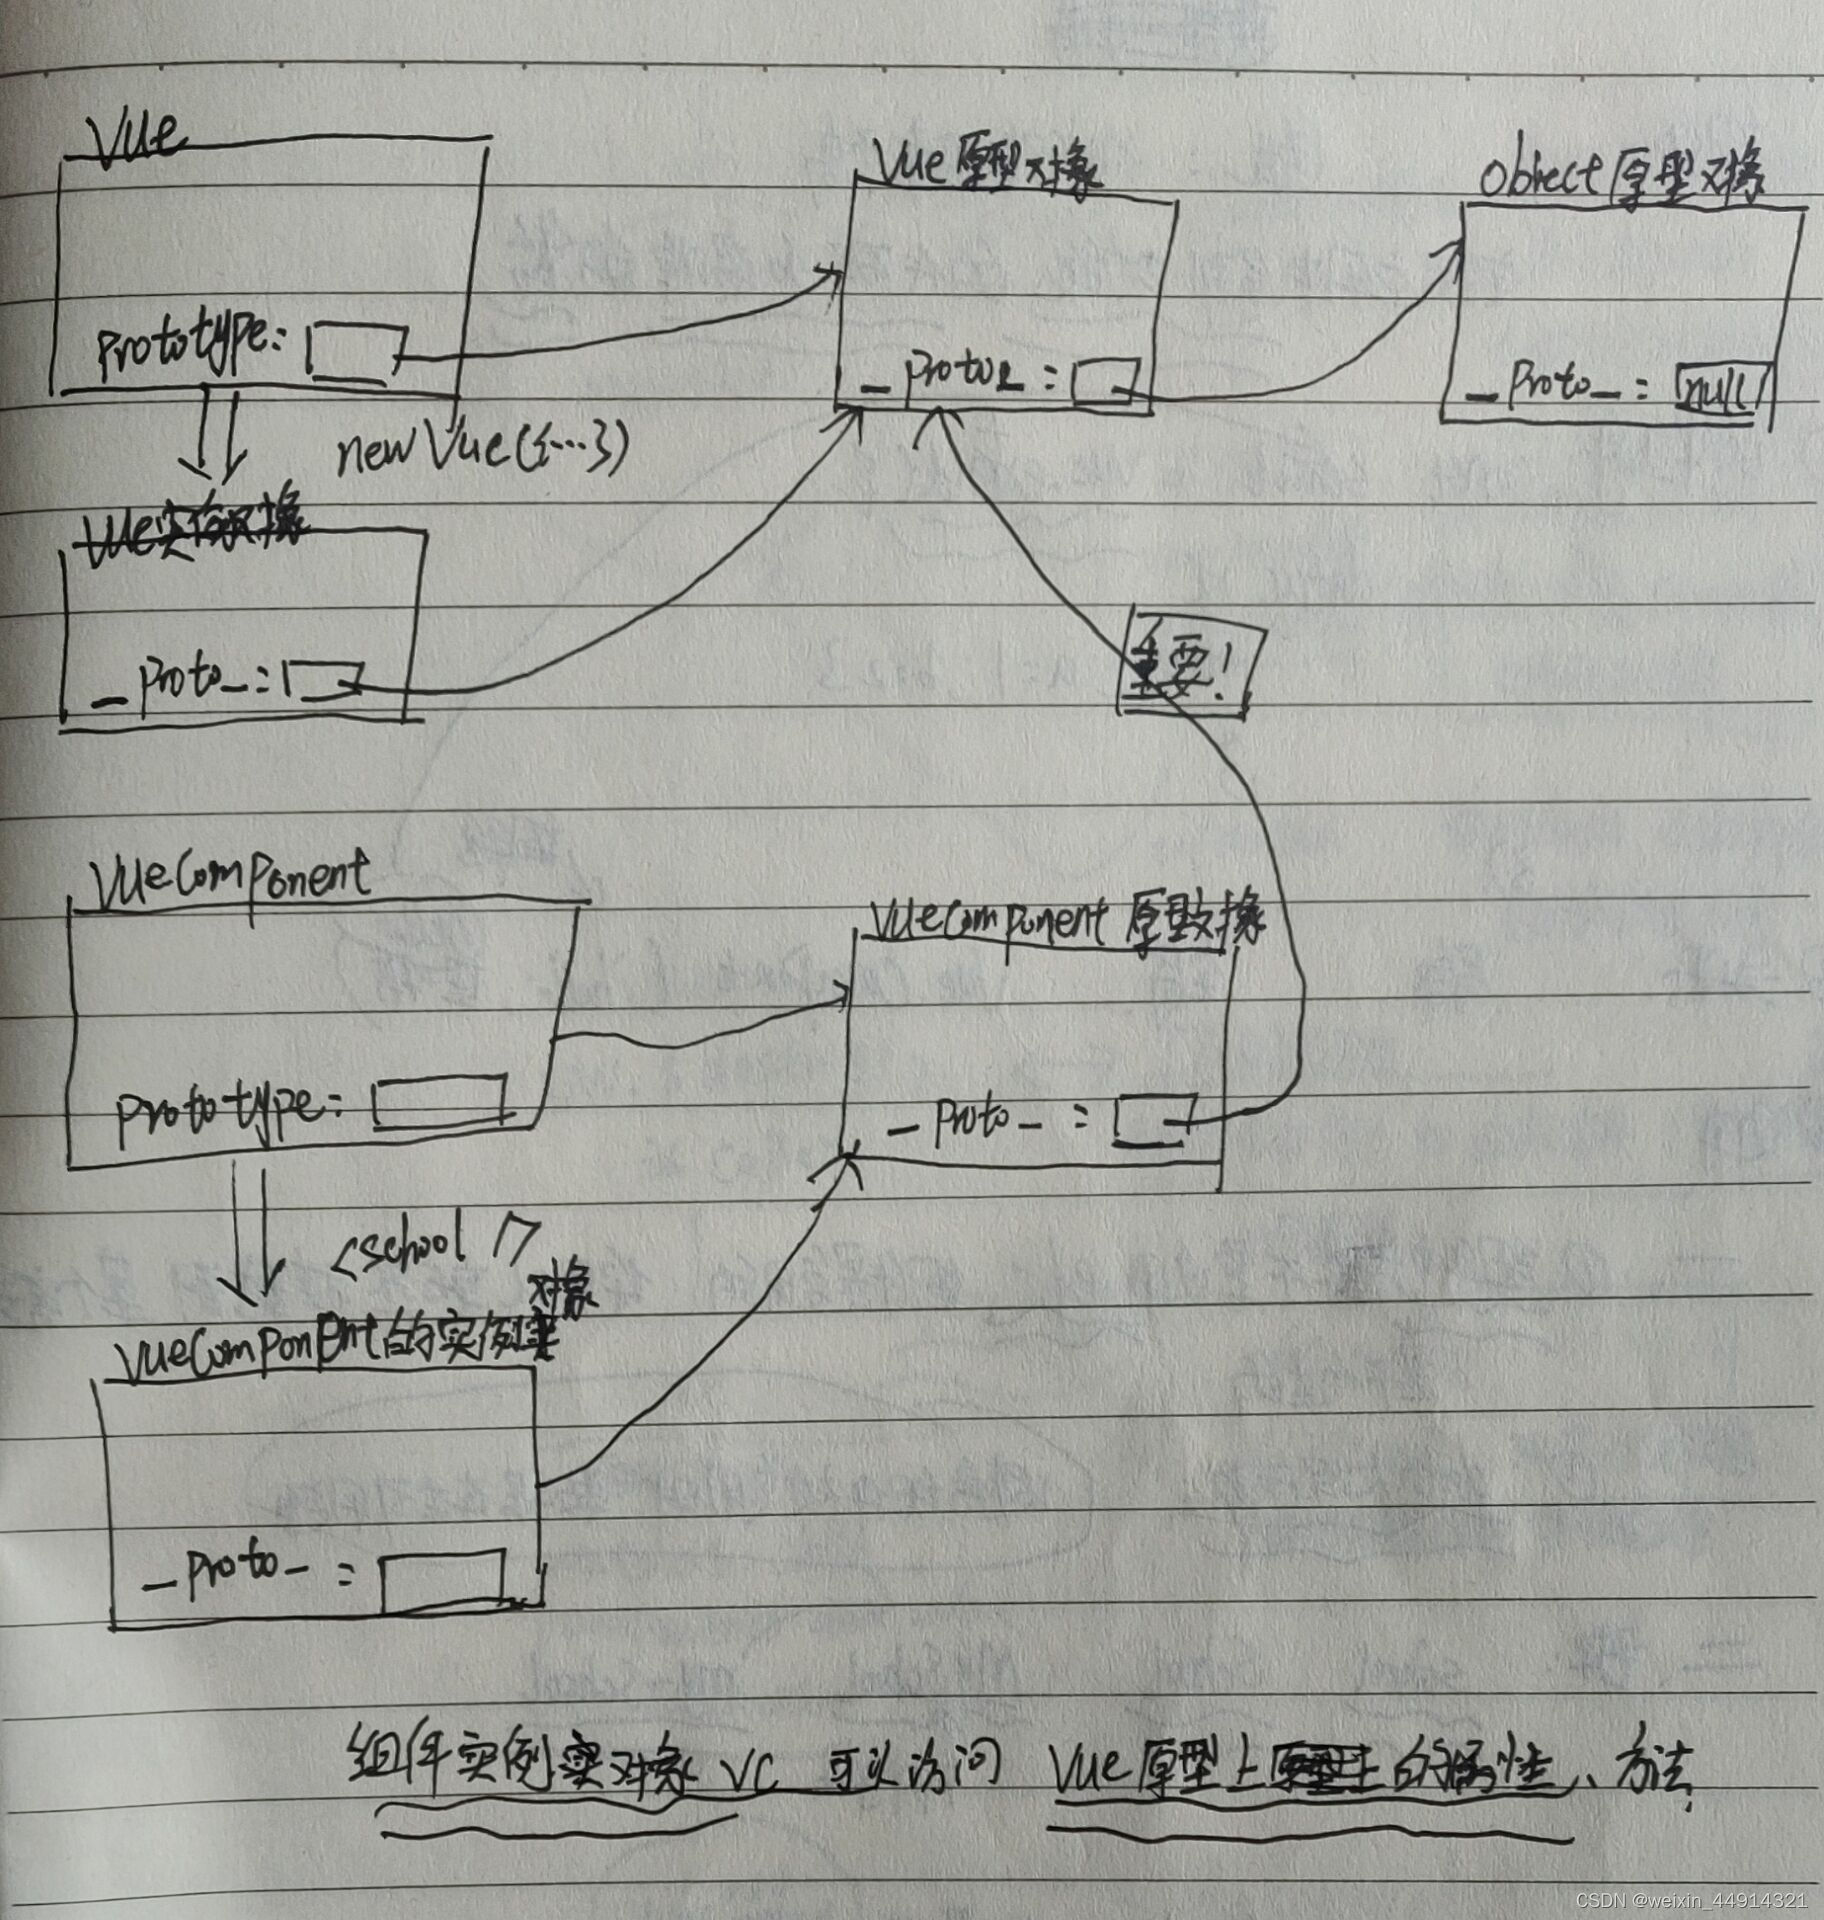 Vue
Vue原型对象
Object原型对象
Prototype:
_Proto_:
_Proto_:
null
new Vue({...})
Vue实例对象
_Proto_:
重要!
VueComponent
VueComponent 原型对象
Prototype:
_Proto_ :
<school />
对象
VueComponent的实例
_Proto_ :
组件实例对象 VC 可以访问 Vue原型上的属性、方法
CSDN @weixin_44914321